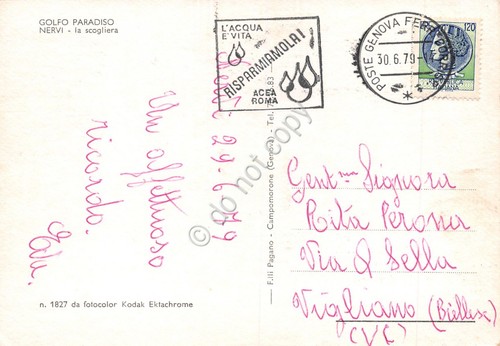 GOLFO PARADISO
NERVI - la scogliera
L'ACQUA
E' VITA
RISPARMIAMOLA!
ACEA
ROMA
POSTE GENOVA
30.6.79
120
29-6-79
Un affettuoso
ricordo.
Gent.ma Signora
Rita Perona
Via Q Sella
Vigliano (Biellese)
(VC)
F.lli Pagano - Campomorone (Genova) - Tel.
n. 1827 da fotocolor Kodak Ektachrome
do not copy